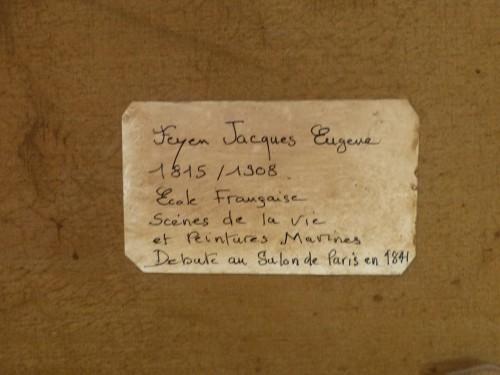 Feyen Jacques Eugene
1815/1908.
Ecole Française
Scènes de la vie
et Peintures Marines
Debute au Salon de Paris en 1841